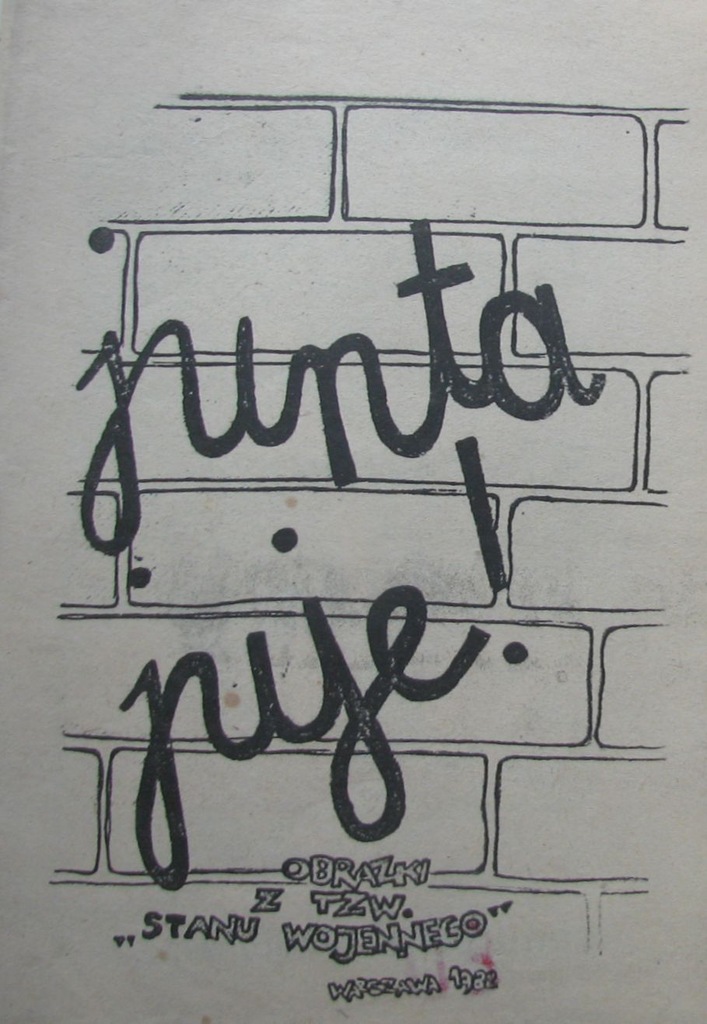 junta
juje!
OBRAZKI
Z TZW.
„STANU WOJENNEGO”
WARSZAWA 1982